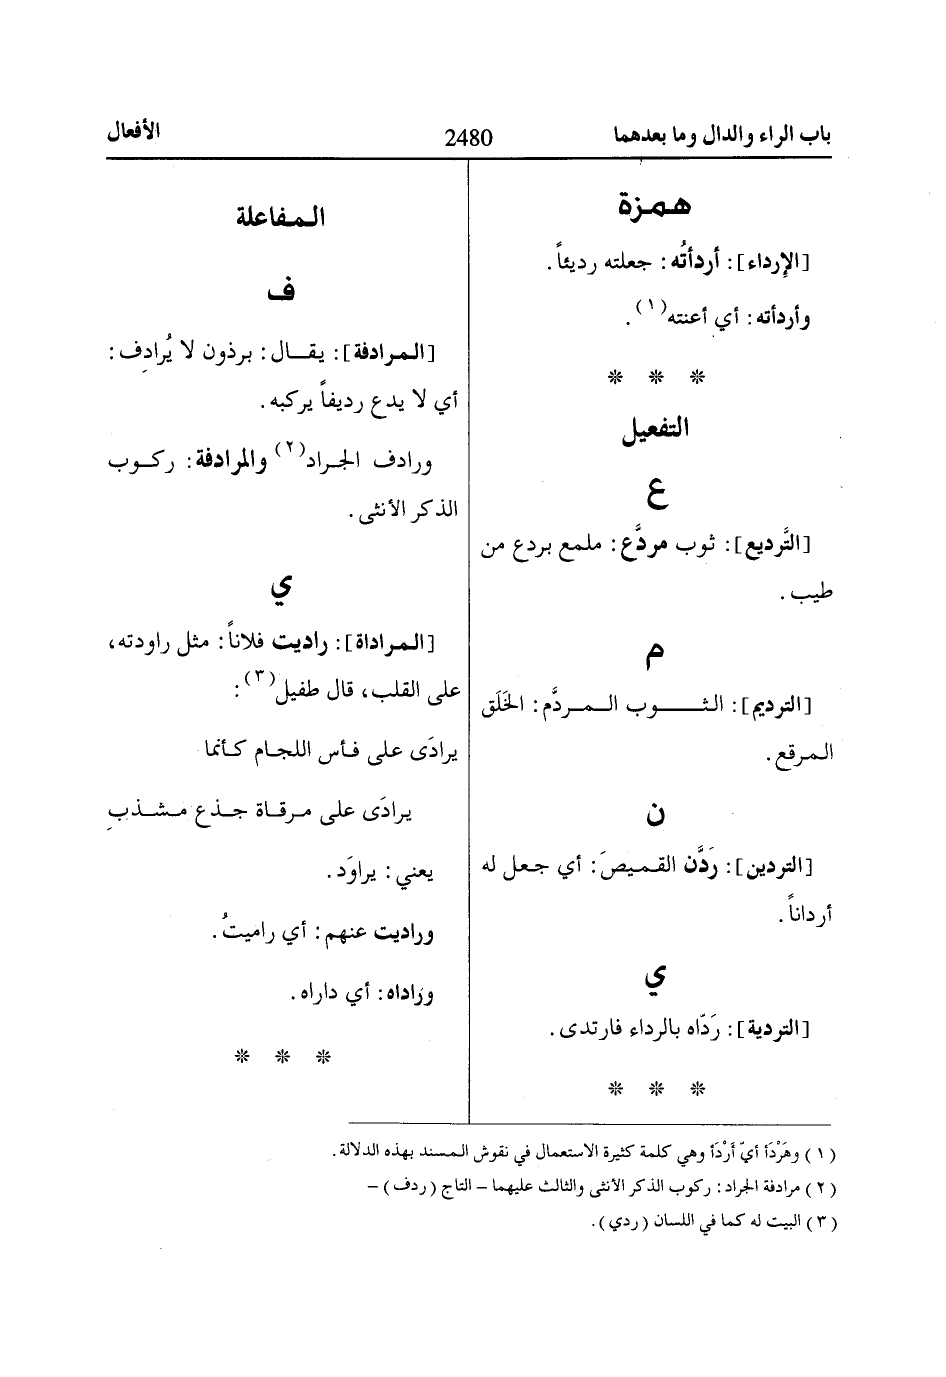 باب الراء والدال وما بعدهما
2480
الأفعال
همزة
[الإرداء]: أردأتُه: جعلته رديئاً.
وأردأته: أي أعنته(١).
* * *
التفعيل
ع
[التَّرديع]: ثوب مردَّع: ملمع بردع من
طيب.
م
[الترديم]: الثوب المردَّم: الخَلَق
المرقع.
ن
[التردين]: رَدَّن القميصَ: أي جعل له
أرداناً.
ي
[التردية]: رَدّاه بالرداء فارتدى.
* * *
المفاعلة
ف
[المرادفة]: يقال: برذون لا يُرادِف:
أي لا يدع رديفاً يركبه.
ورادف الجراد(٢) والمرادفة: ركوب
الذكر الأنثى.
ي
[المراداة]: راديت فلاناً: مثل راودته،
على القلب، قال طفيل(٣):
يرادَى على فأس اللجام كأنما
يرادَى على مرقاة جذع مشذبِ
يعني: يراوَد.
وراديت عنهم: أي راميتُ.
ورَاداه: أي داراه.
* * *
(١) وهَرْدَأ أيّ أَرْدَأ وهي كلمة كثيرة الاستعمال في نقوش المسند بهذه الدلالة.
(٢) مرادفة الجراد: ركوب الذكر الأنثى والثالث عليهما – التاج (ردف) –
(٣) البيت له كما في اللسان (ردي).